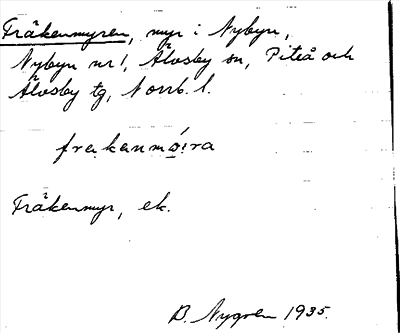 Fräkenmyren, myr i Nybyn,
Nybyn nr 1, Älvsby sn, Piteå och
Älvsby tg, Norrb. l.
fra̤kanmǫ:ra
Fräkenmyr, ek.
B. Nygren 1935.